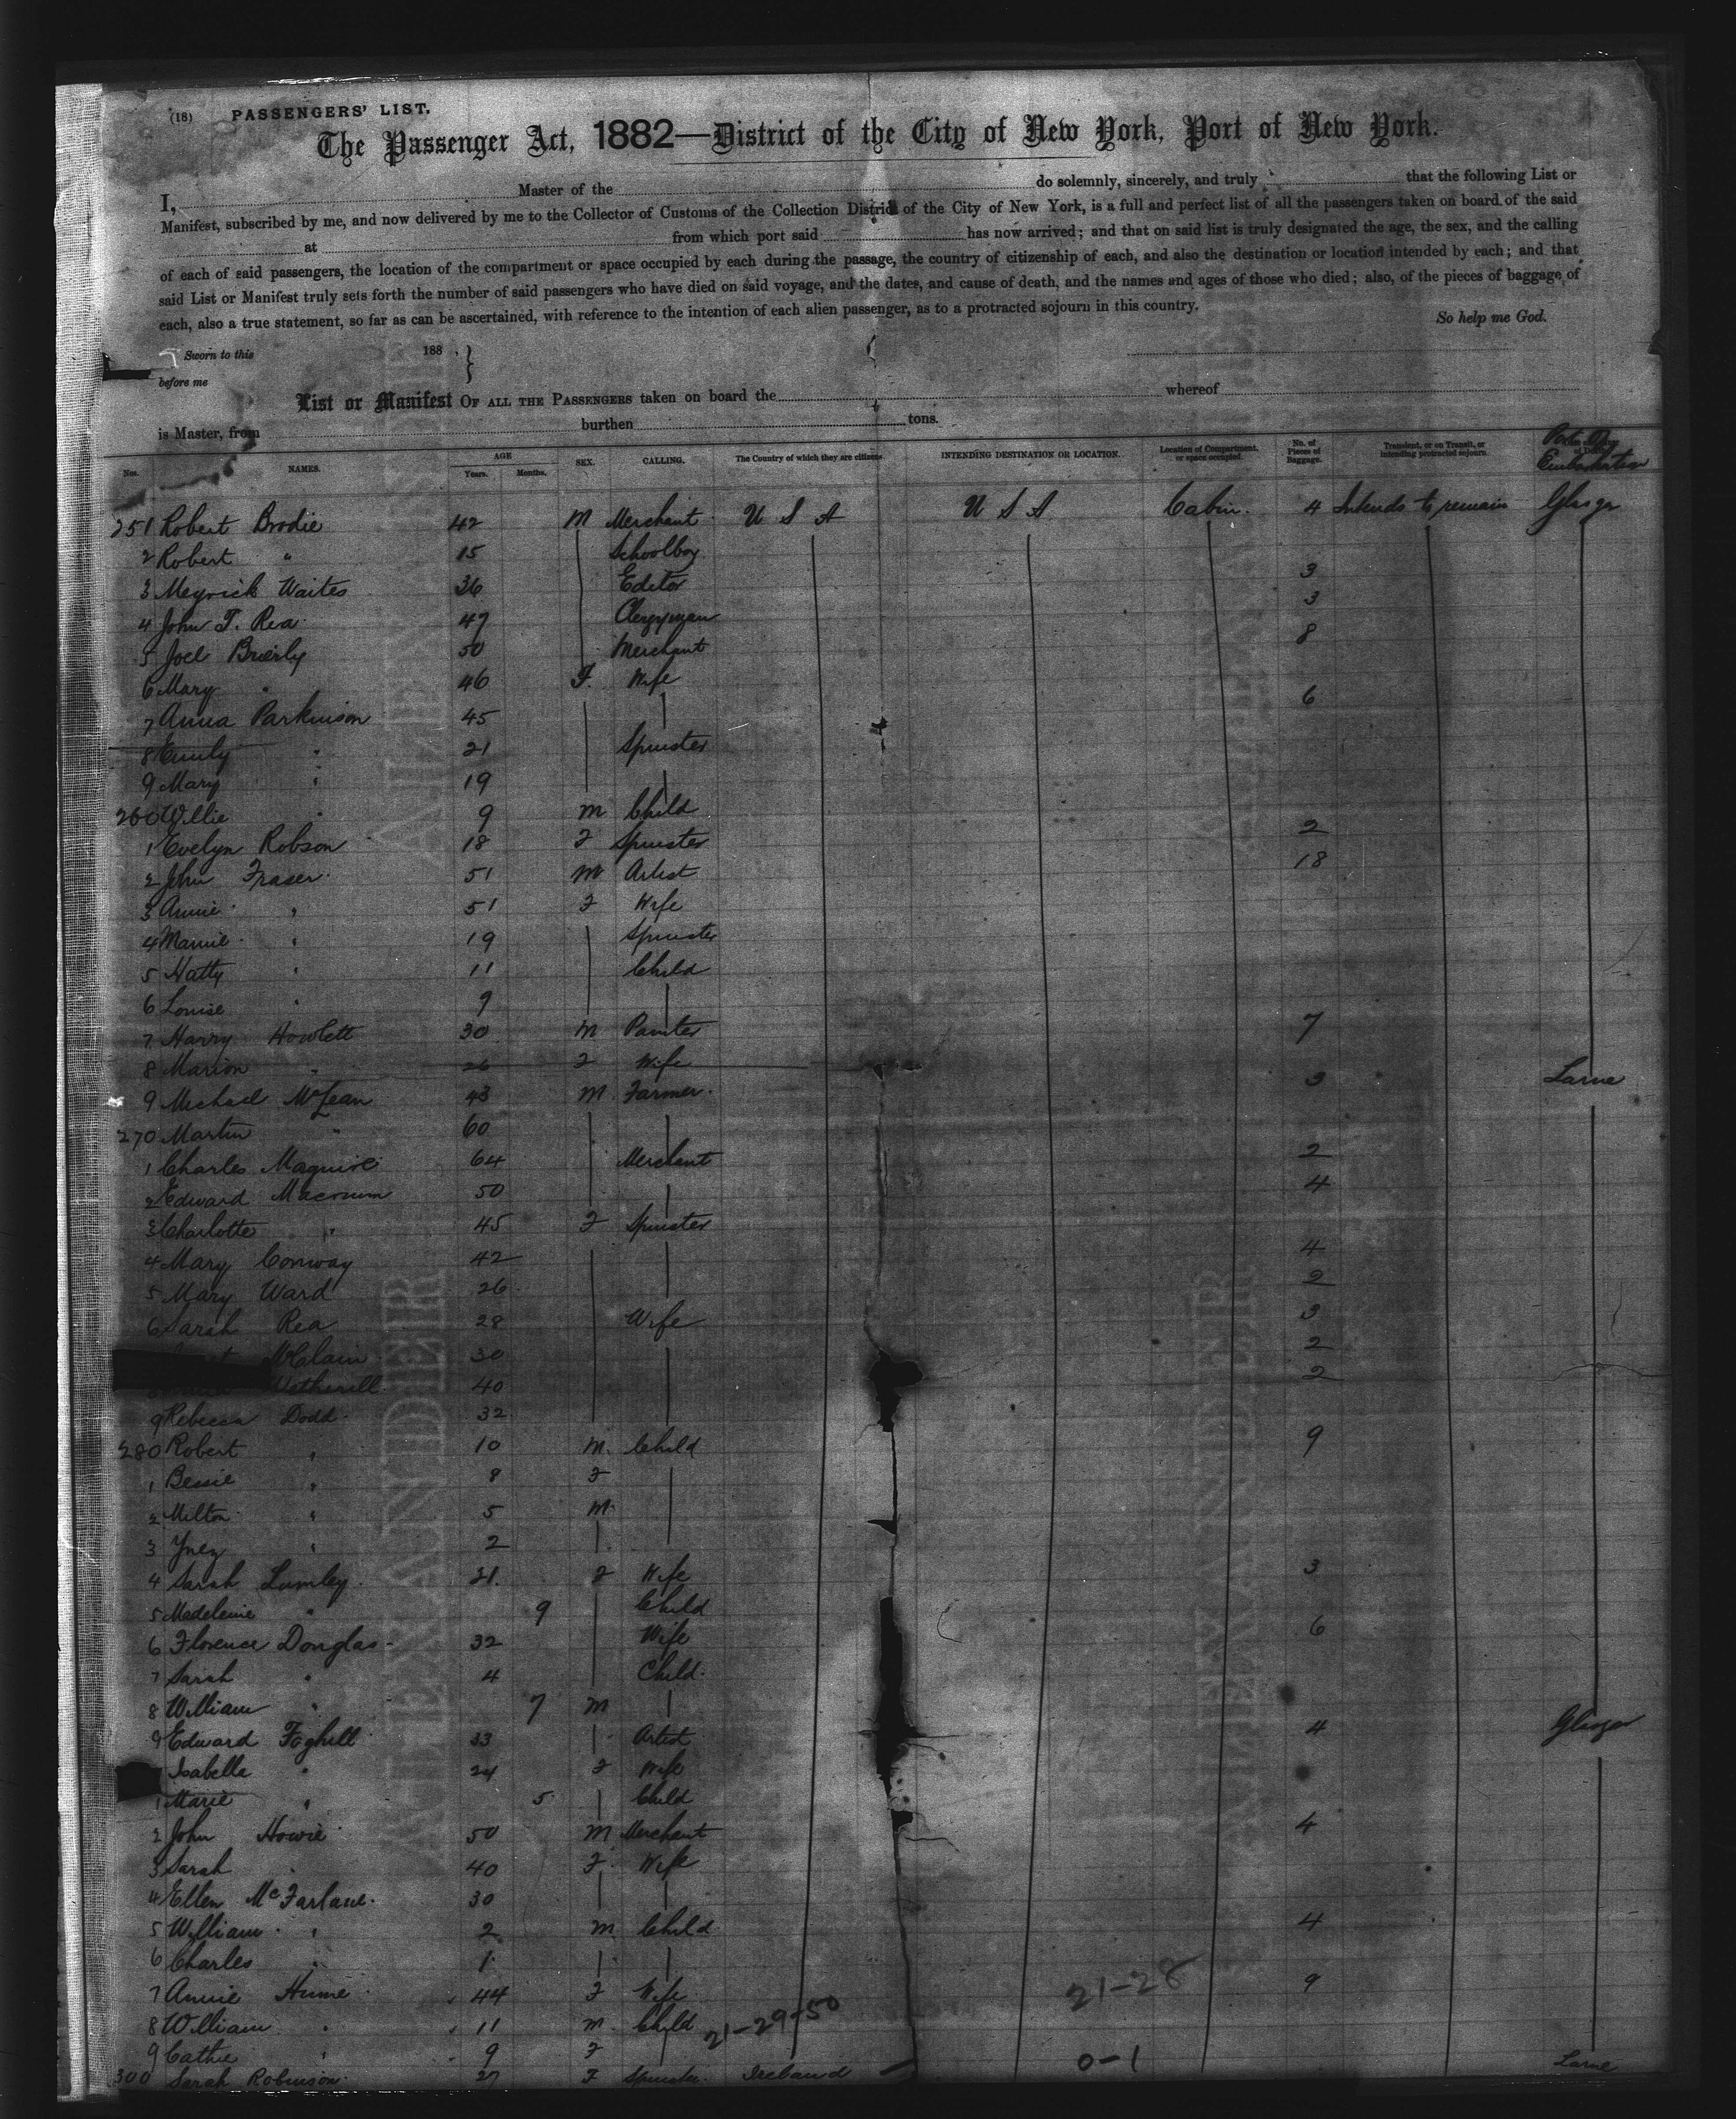 (18) PASSENGERS' LIST.
The Passenger Act, 1882—District of the City of New York, Port of New York.
I, Master of the do solemnly, sincerely, and truly that the following List or
Manifest, subscribed by me, and now delivered by me to the Collector of Customs of the Collection District of the City of New York, is a full and perfect list of all the passengers taken on board of the said
at from which port said has now arrived; and that on said list is truly designated the age, the sex, and the calling
of each of said passengers, the location of the compartment or space occupied by each during the passage, the country of citizenship of each, and also the destination or location intended by each; and that
said List or Manifest truly sets forth the number of said passengers who have died on said voyage, and the dates, and cause of death, and the names and ages of those who died; also, of the pieces of baggage of
each, also a true statement, so far as can be ascertained, with reference to the intention of each alien passenger, as to a protracted sojourn in this country. So help me God.
Sworn to this 188 .}
before me
List or Manifest OF ALL THE PASSENGERS taken on board the whereof
is Master, from burthen tons.
Nos. NAMES. AGE Years. Months. SEX. CALLING. The Country of which they are citizens INTENDING DESTINATION OR LOCATION. Location of Compartment, or space occupied. No. of Pieces of Baggage. Transient, or on Transit, or intending protracted sojourn. Port of Embarkation
251 Robert Brodie 42 M Merchant U S A U S A Cabin. 4 Intends to remain Glasgow
2 Robert " 15 Schoolboy
3 Meyrick Waites 36 Editor 3
4 John T. Rea 47 Clergyman 3
5 Joel Brierly 50 Merchant 8
6 Mary " 46 F. Wife
7 Anna Parkinson 45 6
8 Emily " 21 Spinster
9 Mary " 19
260 Willie " 9 M Child
1 Evelyn Robson 18 F Spinster 2
2 John Fraser 51 M Artist 18
3 Annie " 51 F Wife
4 Mamie " 19 Spinster
5 Hatty " 11 Child
6 Louise " 9
7 Harry Howlett 30 M Painter 7
8 Marion " 26 F Wife
9 Michael McLean 43 M. Farmer. 3 Larne
270 Martin " 60
1 Charles Maguire 64 Merchant 2
2 Edward Macrum 50 4
3 Charlotte " 45 F Spinster
4 Mary Conway 42 4
5 Mary Ward 26 2
6 Sarah Rea 28 Wife 3
McClain 30 2
Wetherill 40 2
9 Rebecca Dodd 32
280 Robert " 10 M. Child 9
1 Bessie " 8 F
2 Milton " 5 M.
3 Ynez " 2
4 Sarah Lumley 21. F Wife 3
5 Madeleine " 9 Child
6 Florence Douglas 32 Wife 6
7 Sarah " 4 Child.
8 William " 7 M
9 Edward Foghill 33 Artist 4 Glasgow
Isabella " 24 F Wife
1 Marie " 5 Child
2 John Howie 50 M Merchant 4
3 Sarah " 40 F. Wife
4 Ellen McFarlane. 30
5 William " 2 M. Child 4
6 Charles " 1
7 Annie Hume 44 F Wife 9
21-28
8 William " 11 M. Child 21-29-50
9 Cathie " 9 F
0-1
300 Sarah Robinson. 27 F Spinster. Ireland Larne
ALEXANDER
ALEXANDER